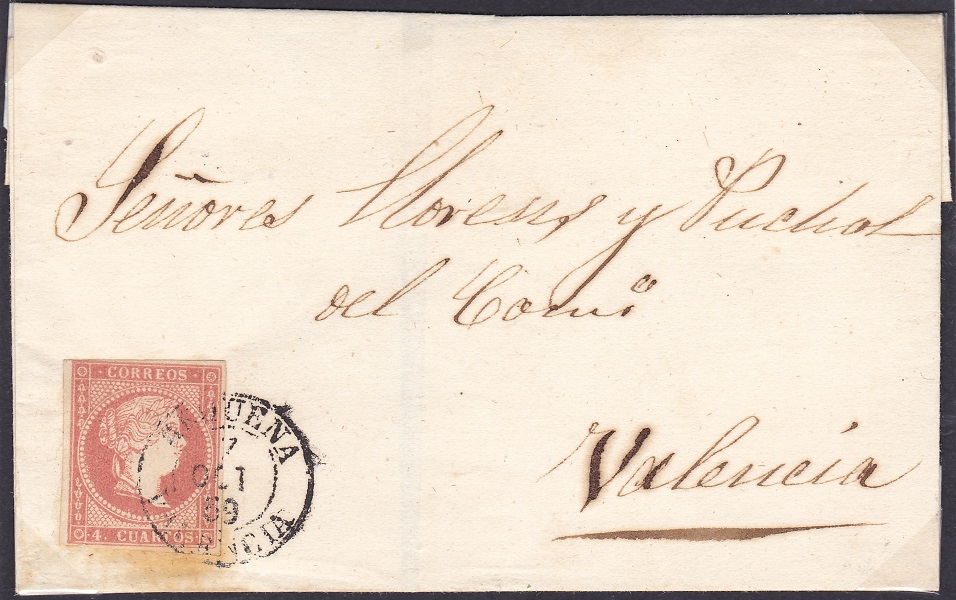 Señores Llorens y Puchol
del Comº
Valencia
CORREOS
4 CUARTOS
REQUENA
7
OCT
59
VALENCIA